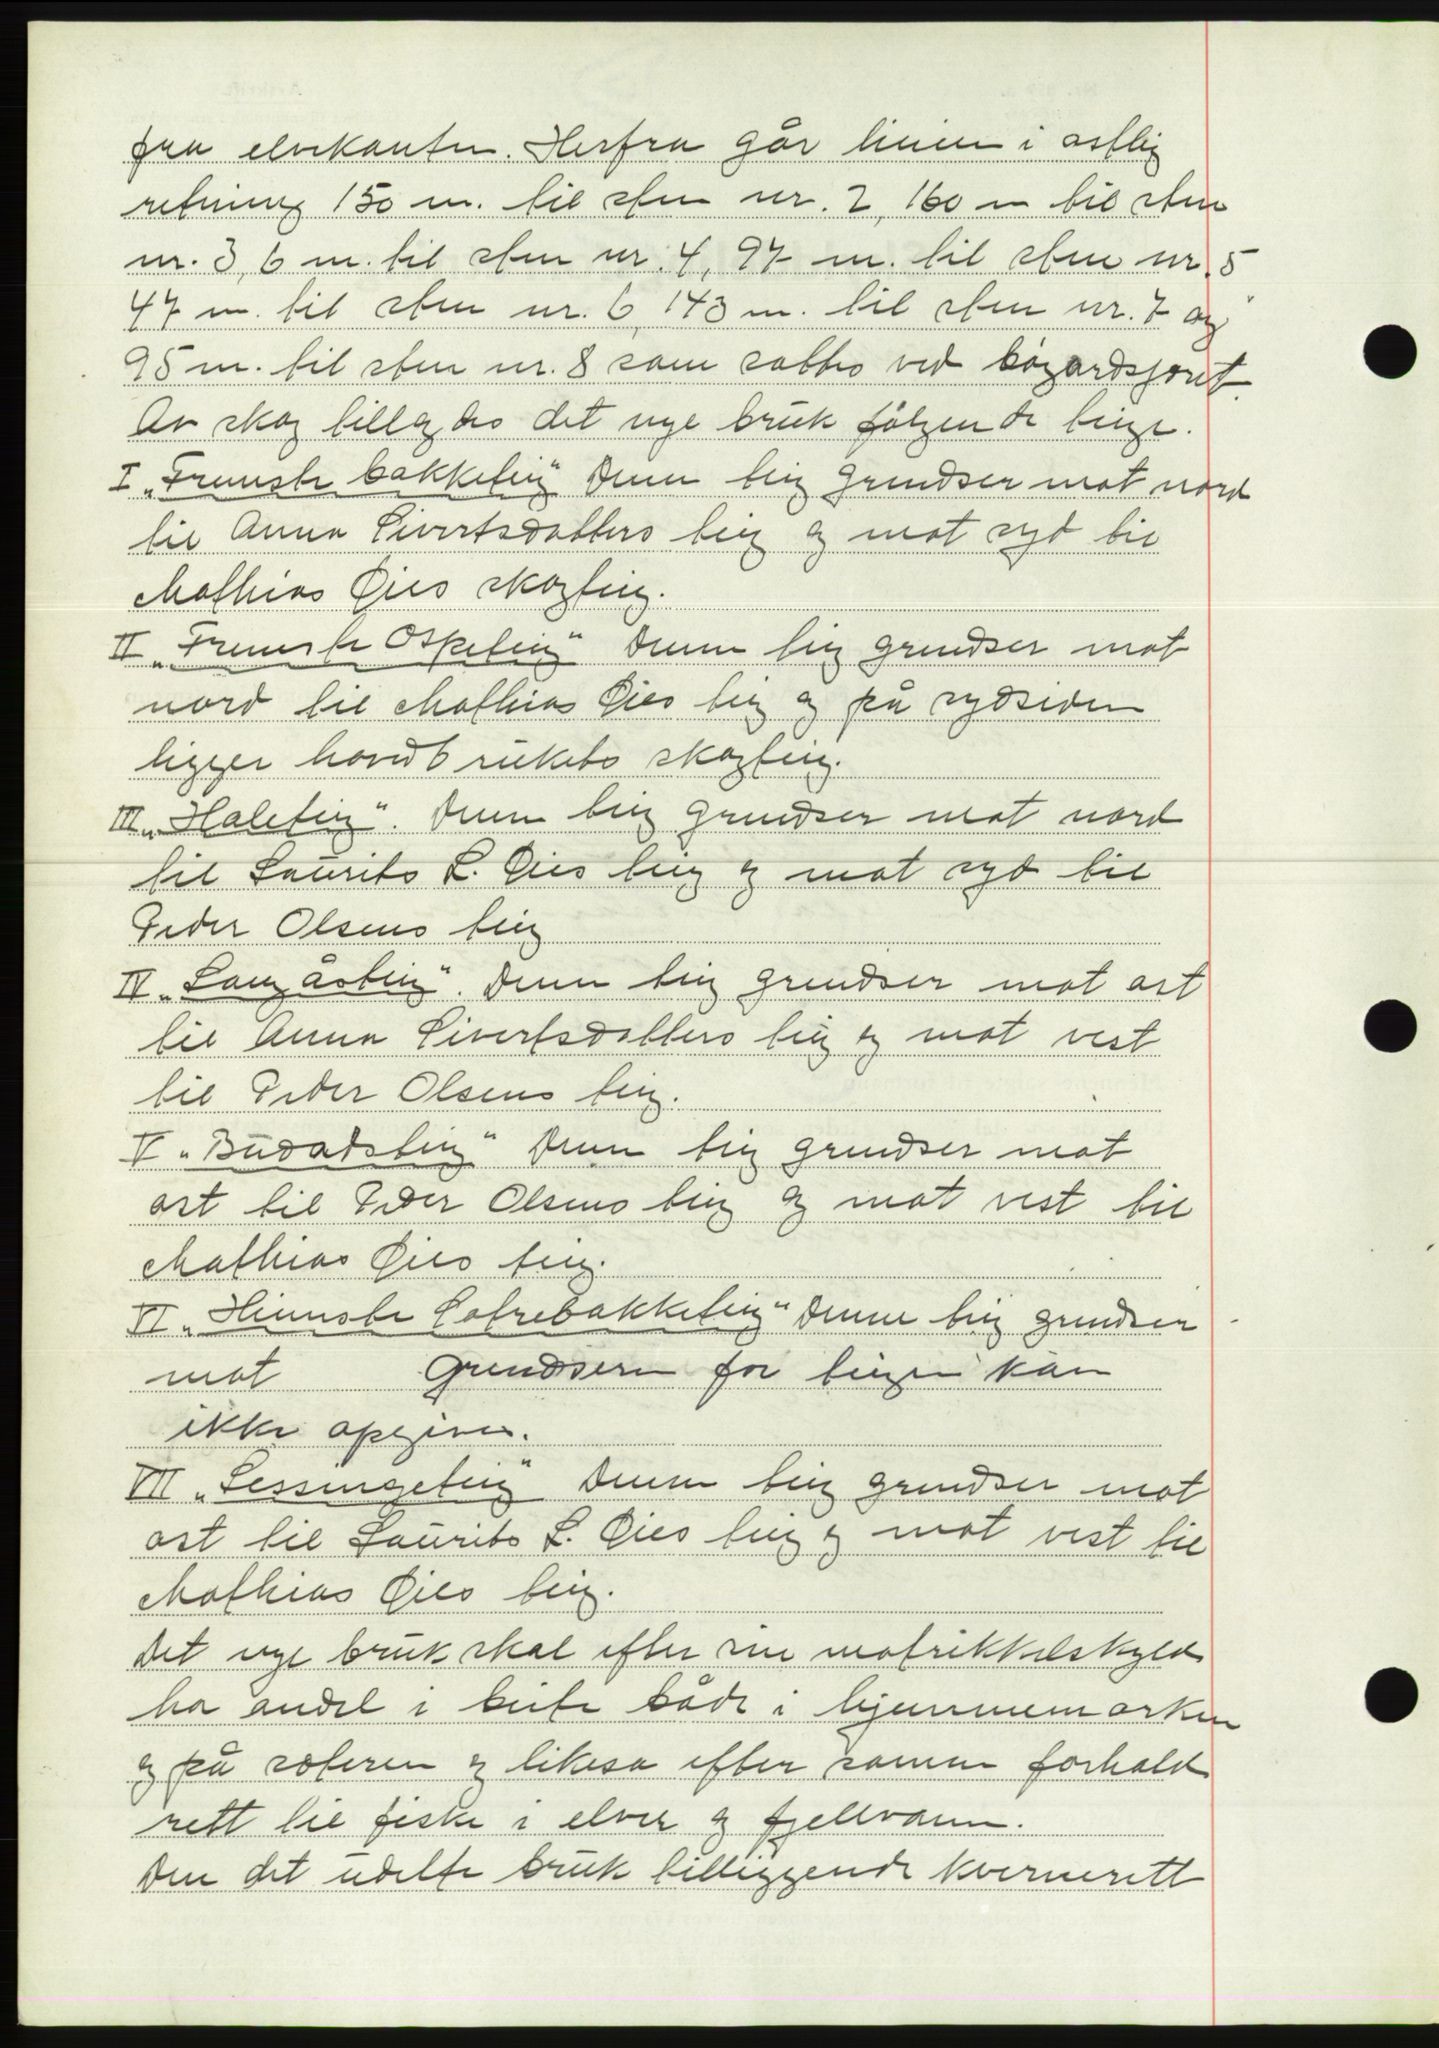 fra elvekanten. Herfra går linien i østlig
retning 150 m. til sten nr. 2, 160 m til sten
nr. 3, 6 m. til sten nr. 4, 97 m. til sten nr. 5
47 m. til sten nr. 6, 143 m. til sten nr. 7 og
95 m. til sten nr. 8 som sattes ved bøgardsgjæret.
Av skog tillegdes det nye bruk følgende teige.
I „Fremste bakketeig“ Denne teig grendser mot nord
til Anna Sivertsdatters teig og mot syd til
Mathias Øies skogteig.
II „Fremste Ospeteig“ Denne teig grendser mot
nord til Mathias Øies teig og på sydsiden
ligger hovedbrukets skogteig.
III „Haleteig“. Denne teig grendser mot nord
til Laurits L. Øies teig og mot syd til
Peder Olsens teig
IV „Langåsteig“. Denne teig grendser mot øst
til Anna Sivertsdatters teig og mot vest
til Peder Olsens teig.
V „Budalsteig“ Denne teig grendser mot
øst til Peder Olsens teig og mot vest til
Mathias Øies teig.
VI „Heimste Sætrebakketeig“ Denne teig grendser
mot Grendsern for teigen kan
ikke opgives.
VII „Lessingeteig“ Denne teig grendser mot
øst til Laurits L. Øies teig og mot vest til
Mathias Øies teig.
Det nye bruk skal efter sin matrikkelskyld
ha andel i beite både i hjemmemarken
og på sæteren og likesa efter samme forhold
rett til fiske i elver og fjellvann.
Den det udelte bruk tilliggende kvernerett